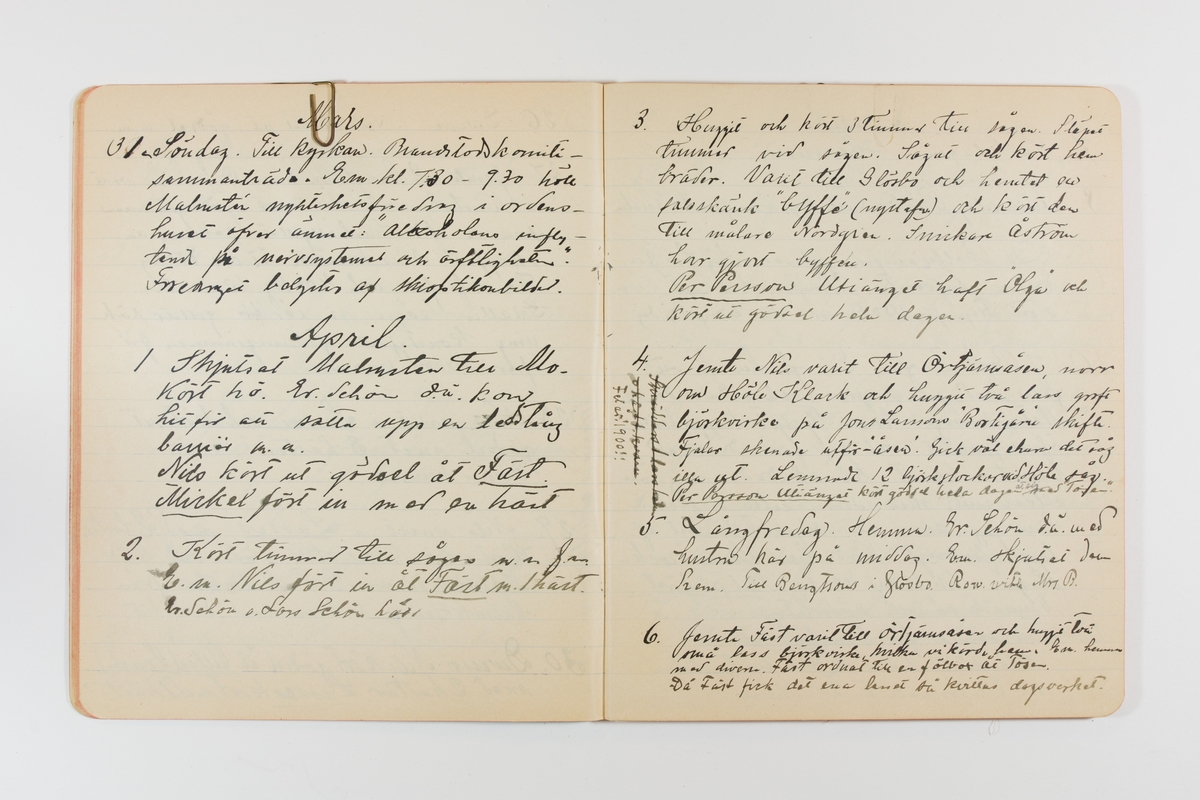 Mars.
31. Söndag. Till Kyrkan. Brandstodskomité-
sammanträde. Em. kl. 7.30 - 9.30 höll
Malmsten nykterhetsföredrag i ordens-
huset öfver ämnet: "Alkoholens infly-
tande på nervsystemet och ärftligheten".
Föredraget belystes af skioptikonbilder.
April.
1 Skjutsat Malmsten till Mo.
Kört hö. Er. Schön d.ä. kom
hit för att sätta upp en ledstång
barriär m.m.
Nils kört ut gödsel åt Fäst.
Mickel fört in med en häst
2. Kört timmer till sågen m.m. f.m.
E.m. Nils fört in åt Fäst m. 1 häst.
Er. Schön o. Lars Schön här.
3. Huggit och kört 3 timmer till sågen. Släpat
timmer vid sågen. Sågat och kört hem
bräder. Varit till Glösbo och hemtat en
salsskänk "byffé" och kört den
till målare Nordgren. Snickare Åström
har gjort byffén.
Per Persson Utiänget haft Olga och
kört ut gödsel hela dagen.
4. Jemte Nils varit till Örtjärnsåsen, norr
om Höle Klack och huggit två lass groft
björkvirke på Jons Larssons Bortigård skifte.
Fjalar skenade utför åsen! Gick väl ehuru det såg
illa ut. Lemnade 12 björkstockar vid Höle såg.
Per Persson Utiänget kört gödsel hela dagen med Tösen.
5. Långfredag. Hemma. Er. Schön d.ä. med
hustru här på middag. Em. skjutsat dem
hem. Till Bengtsons i Glösbo. Mrs B.
6. Jemte Fäst varit till Örtjärnsåsen och huggit två
små lass björkvirke, hvilka vi körde hem. Em. hemma
med divers. Fäst ordnat till en fölbox åt Tösen.
Då Fäst fick det ena lasset så kvittas dagsverket.